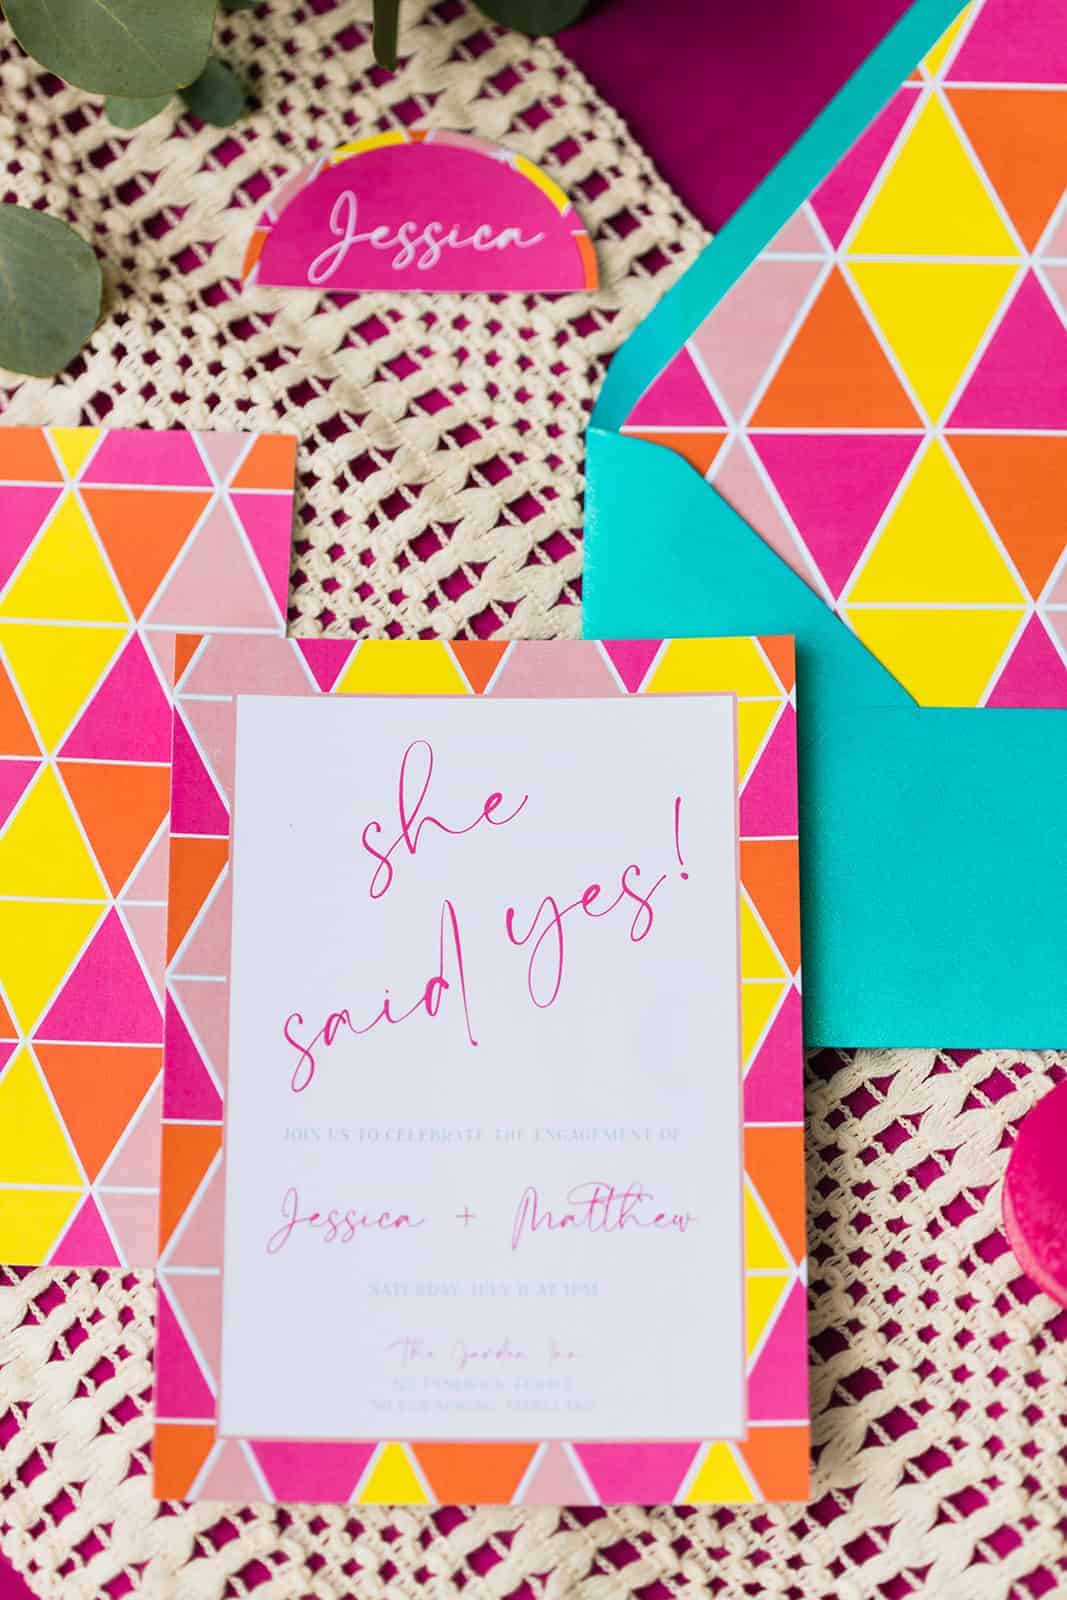 Jessica
she
said yes!
JOIN US TO CELEBRATE THE ENGAGEMENT OF
Jessica + Matthew
SATURDAY, JULY 11 AT 1PM
The Garden Inn